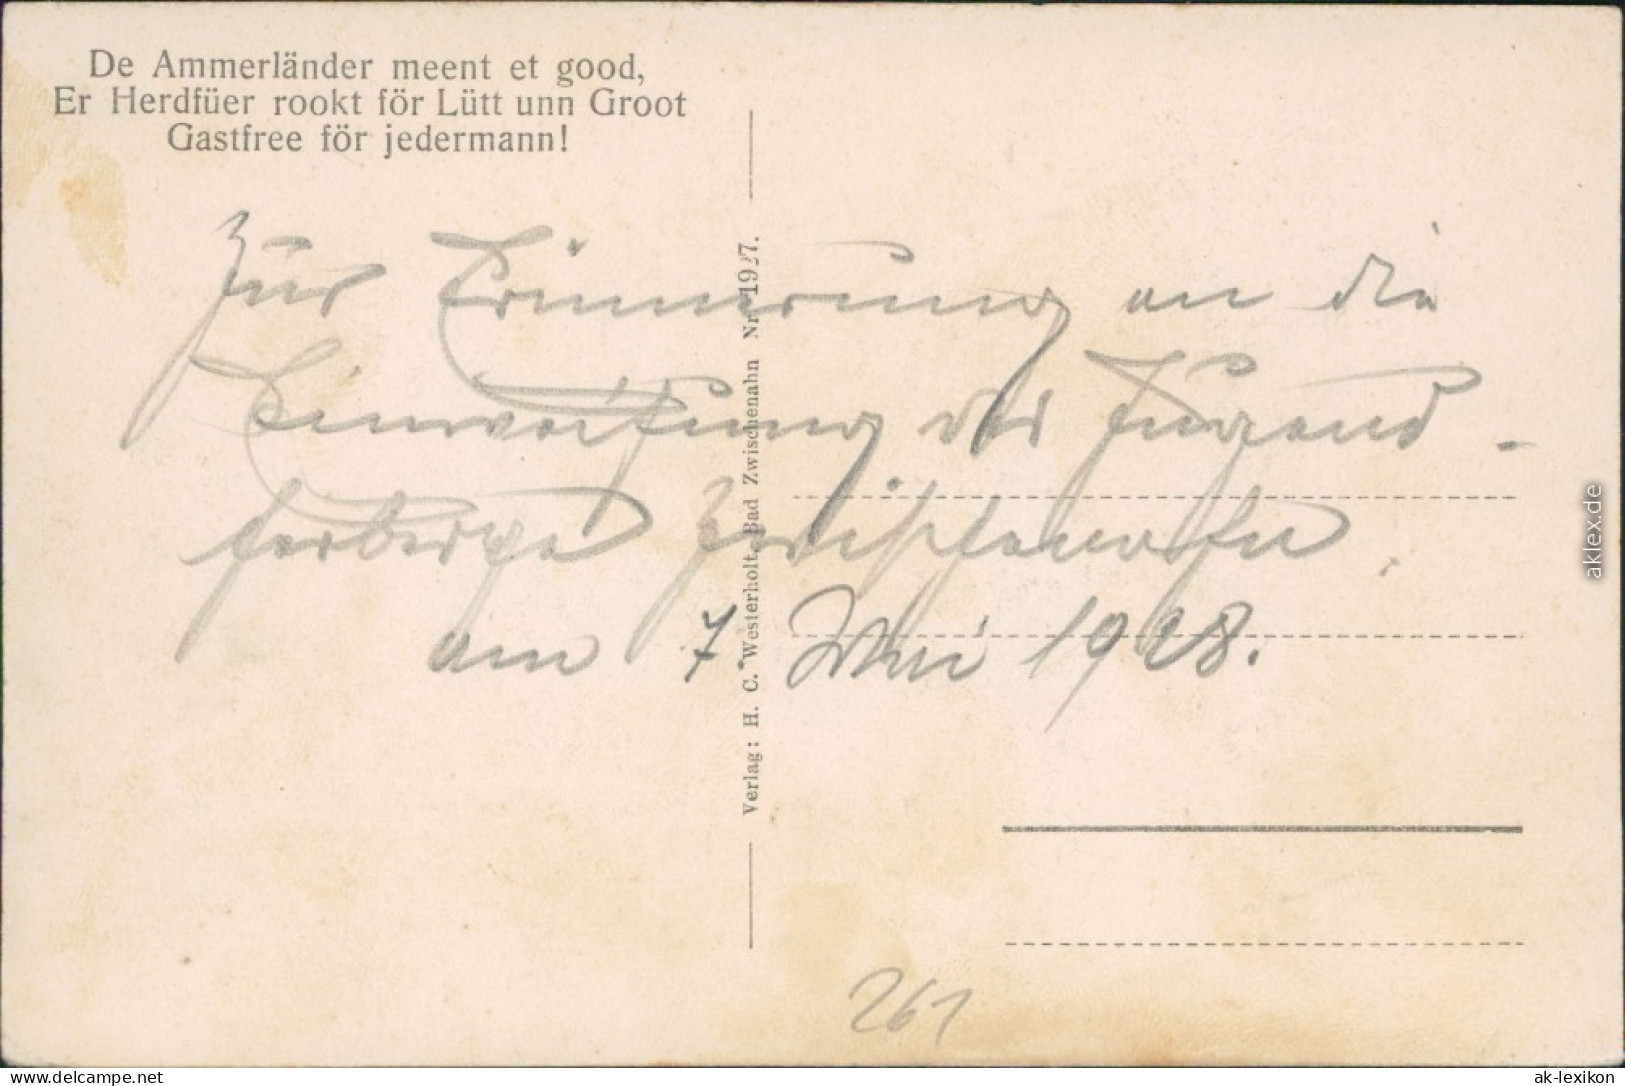 De Ammerländer meent et good,
Er Herdfüer rookt för Lütt unn Groot
Gastfree för jedermann!
Zur Erinnerung an die
Einweihung der Jugend-
herberge Zwischenahn
am 7. Mai 1928.
Verlag: H. C. Westerholt, Bad Zwischenahn Nr. 1927.
261
aklex.de
www.delcampe.net
ak-lexikon